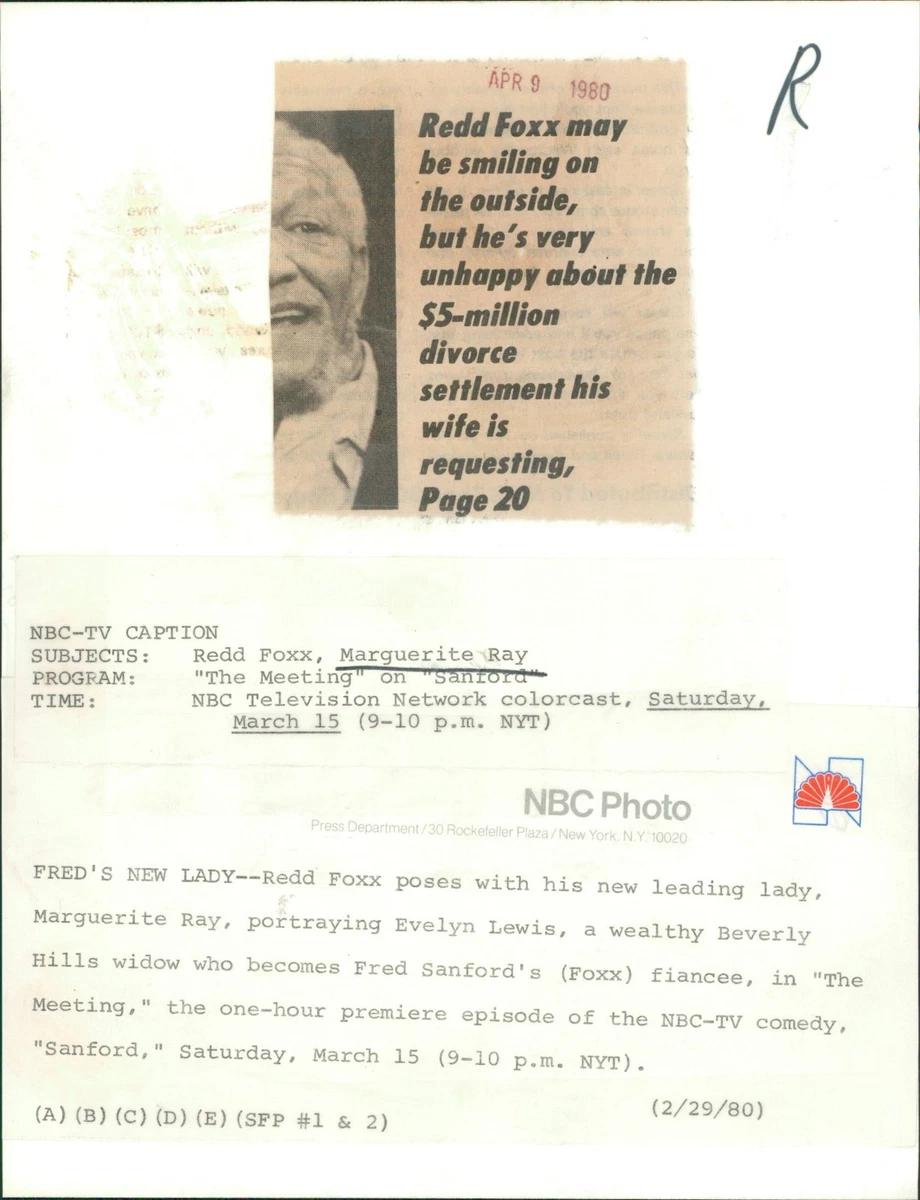 R
APR 9 1980
Redd Foxx may
be smiling on
the outside,
but he's very
unhappy about the
$5-million
divorce
settlement his
wife is
requesting,
Page 20
NBC-TV CAPTION
SUBJECTS: Redd Foxx, Marguerite Ray
PROGRAM: "The Meeting" on "Sanford"
TIME: NBC Television Network colorcast, Saturday,
March 15 (9-10 p.m. NYT)
NBC Photo
Press Department/30 Rockefeller Plaza/New York, N.Y. 10020
FRED'S NEW LADY--Redd Foxx poses with his new leading lady,
Marguerite Ray, portraying Evelyn Lewis, a wealthy Beverly
Hills widow who becomes Fred Sanford's (Foxx) fiancee, in "The
Meeting," the one-hour premiere episode of the NBC-TV comedy,
"Sanford," Saturday, March 15 (9-10 p.m. NYT).
(A)(B)(C)(D)(E)(SFP #1 & 2) (2/29/80)